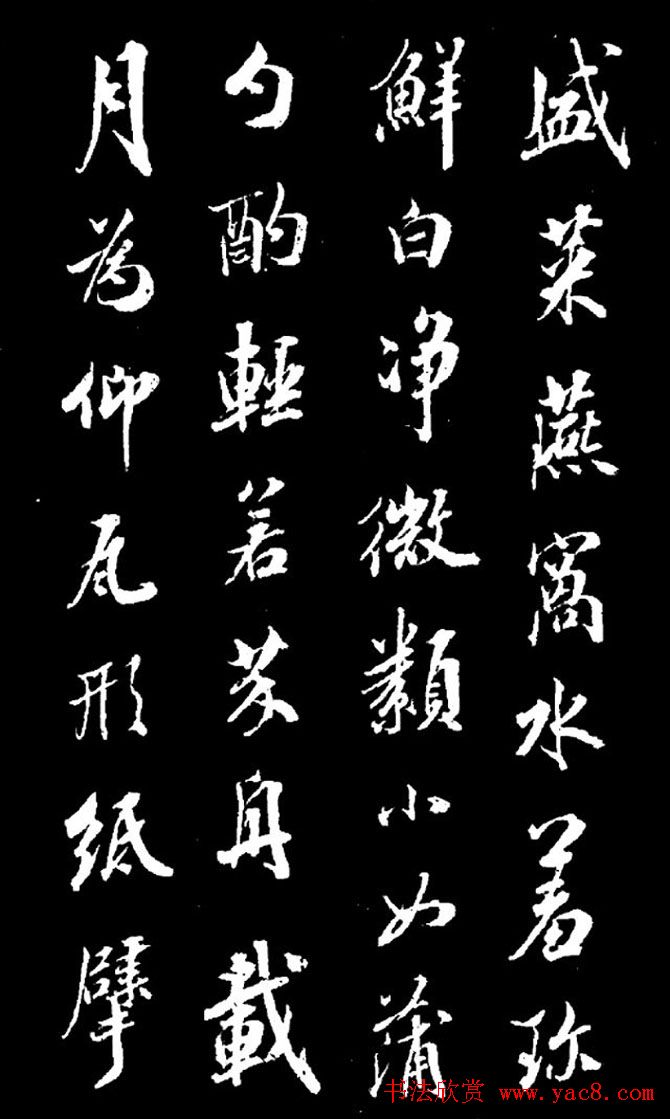 盛菜燕窩水羞珍
鮮白净微纇小如蒲
勺酌輕若芥舟載
月為仰瓦形紙擘
书法欣赏 www.yac8.com